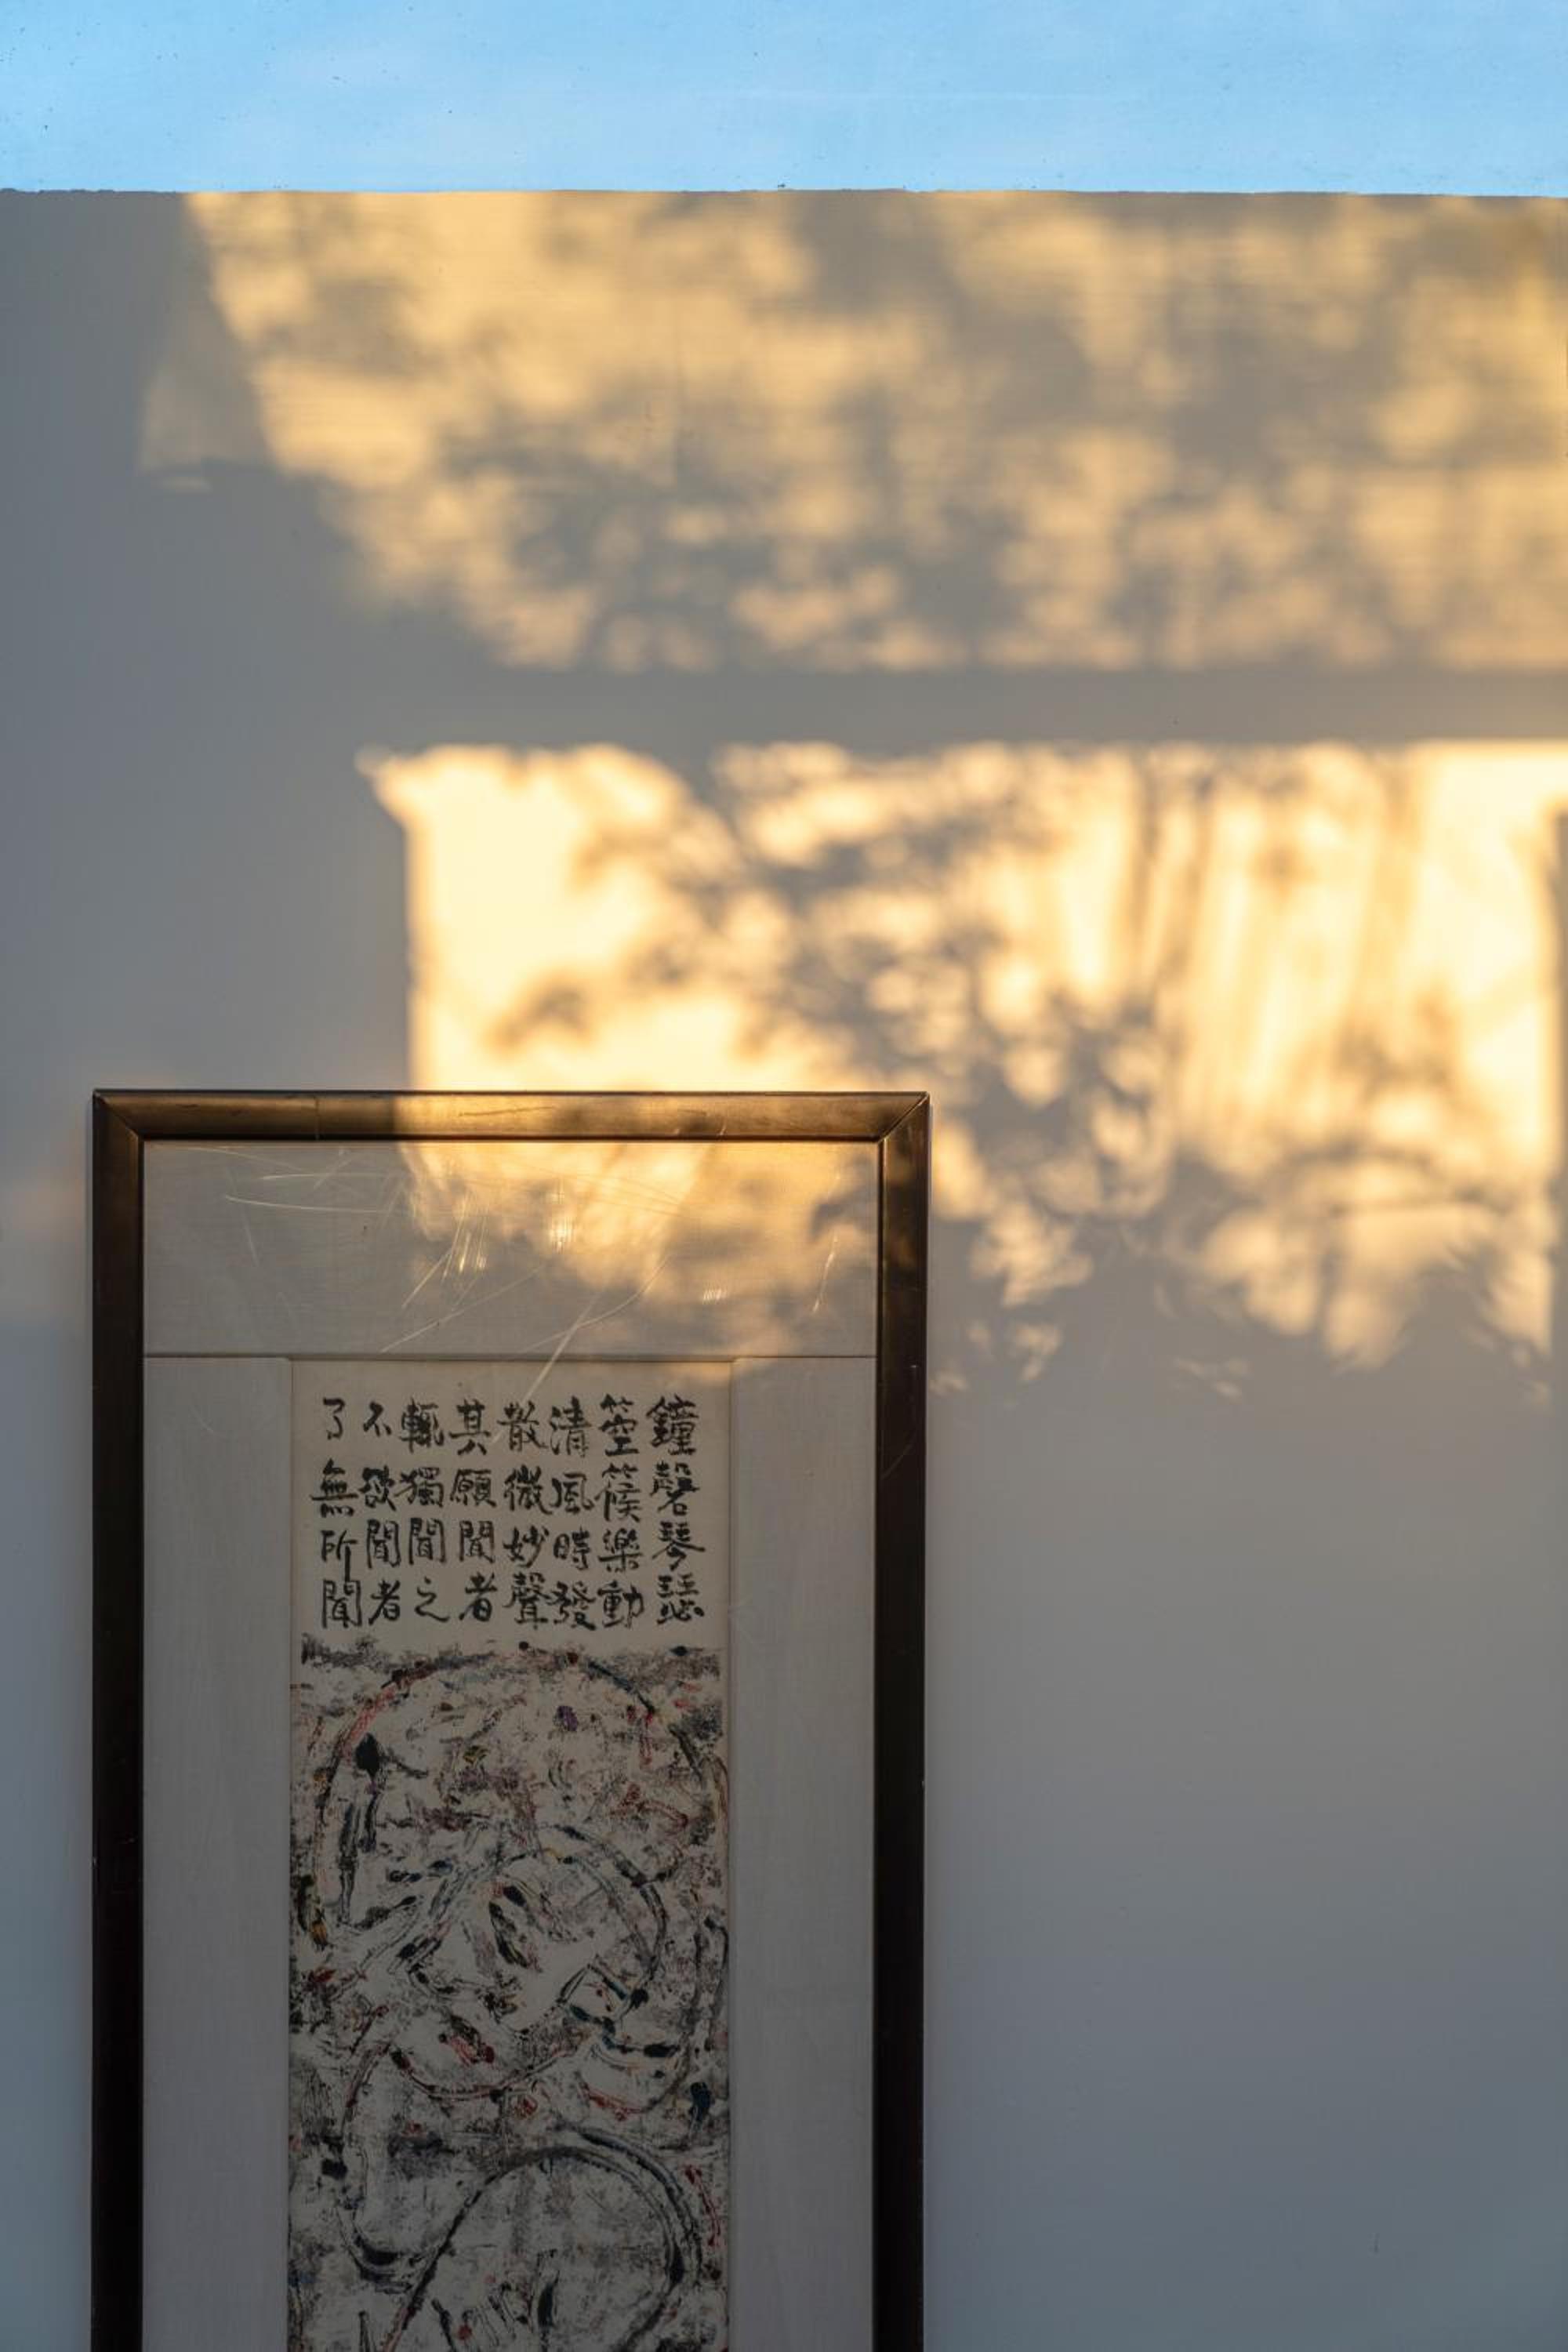 鐘磬琴瑟
箜篌樂動
清風時發
散微妙聲
其願聞者
輒獨聞之
不欲聞者
了無所聞